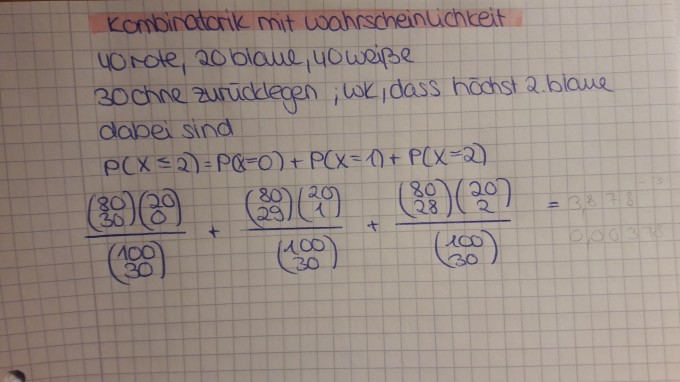 Kombinatorik mit Wahrscheinlichkeit
40 rote, 20 blaue, 40 weiße
30 ohne zurücklegen; WK, dass höchst 2. blaue
dabei sind
P(X ≤ 2) = P(X=0) + P(X=1) + P(X=2)
(80 30)(20 0) / (100 30) + (80 29)(20 1) / (100 30) + (80 28)(20 2) / (100 30) =